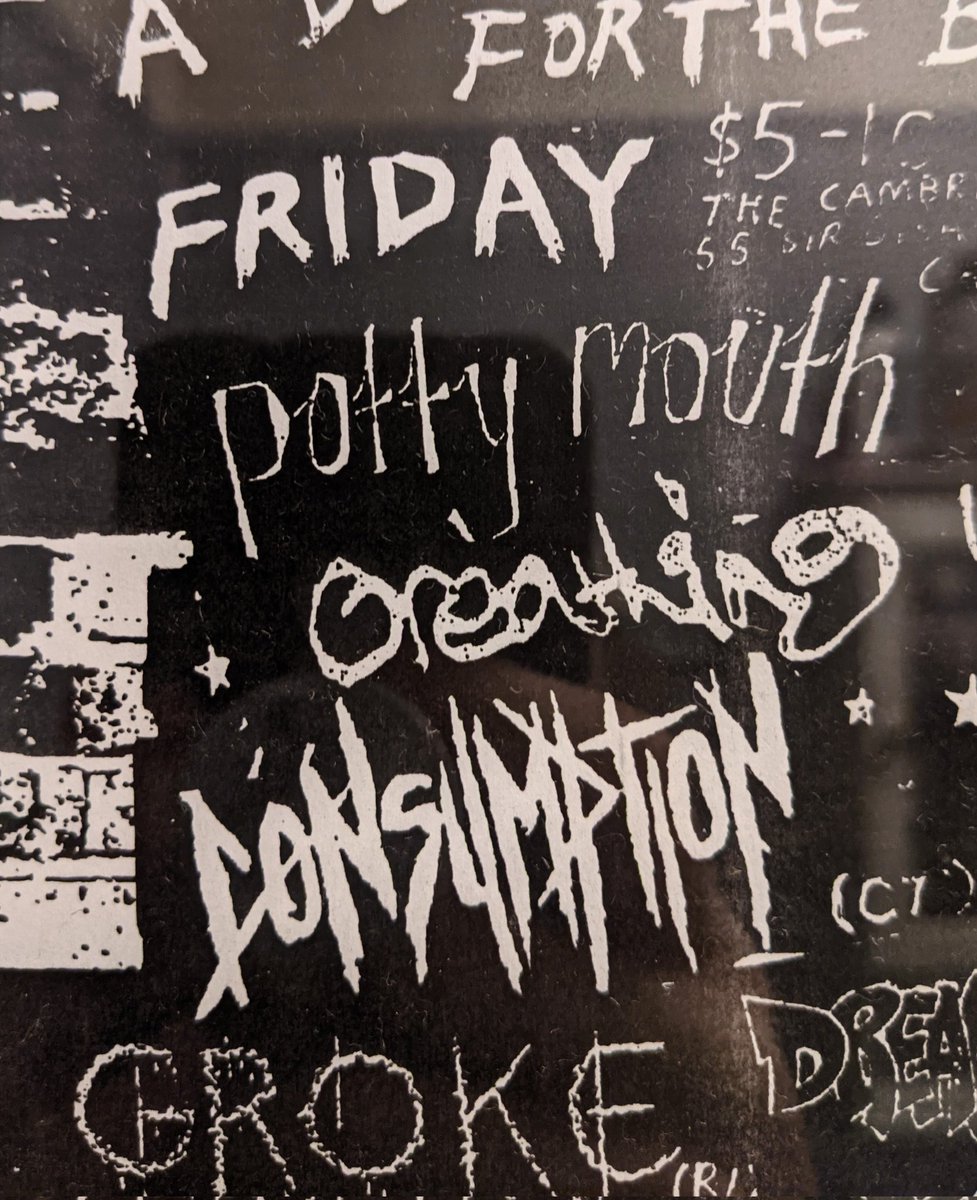 A
FOR THE
FRIDAY
$5-10
THE CAMBR
55 SIR
potty mouth
Creaturing
CONSUMPTION
(CT)
GROKE
DREA
(RI